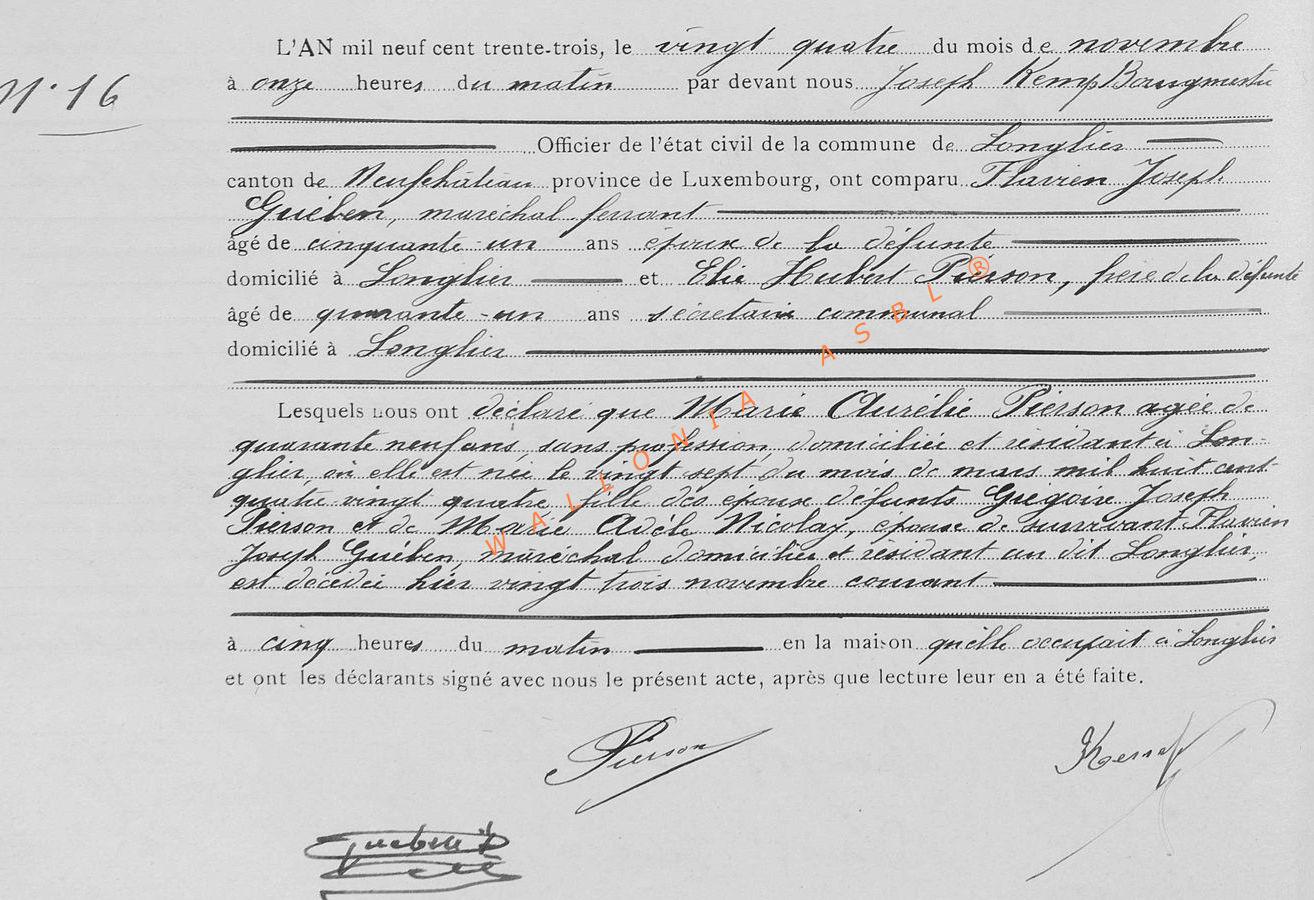 L'AN mil neuf cent trente-trois, le vingt quatre du mois de novembre
N° 16
à onze heures du matin par devant nous Joseph Kemp Bourgmestre
Officier de l'état civil de la commune de Longlier
canton de Neufchâteau province de Luxembourg, ont comparu Flavien Joseph
Guében, maréchal ferrant
âgé de cinquante-un ans époux de la défunte
domicilié à Longlier et Elie Hubert Pierson, frère de la défunte
âgé de quarante-un ans secrétaire communal
domicilié à Longlier
Lesquels nous ont déclaré que Marie Aurélie Pierson agée de
quarante neuf ans, sans profession, domiciliée et résidant à Lon-
glier, où elle est née le vingt sept du mois de mars mil huit cent-
quatre vingt quatre, fille des époux défunts Grégoire Joseph
Pierson et de Marie Adèle Nicolay, épouse de survivant Flavien
Joseph Guében, maréchal domicilié et résidant au dit Longlier,
est décédée hier vingt trois novembre courant
à cinq heures du matin en la maison qu'elle occupait à Longlier
et ont les déclarants signé avec nous le présent acte, après que lecture leur en a été faite.
Pierson
Kemp
WALLONIA ASBL ®